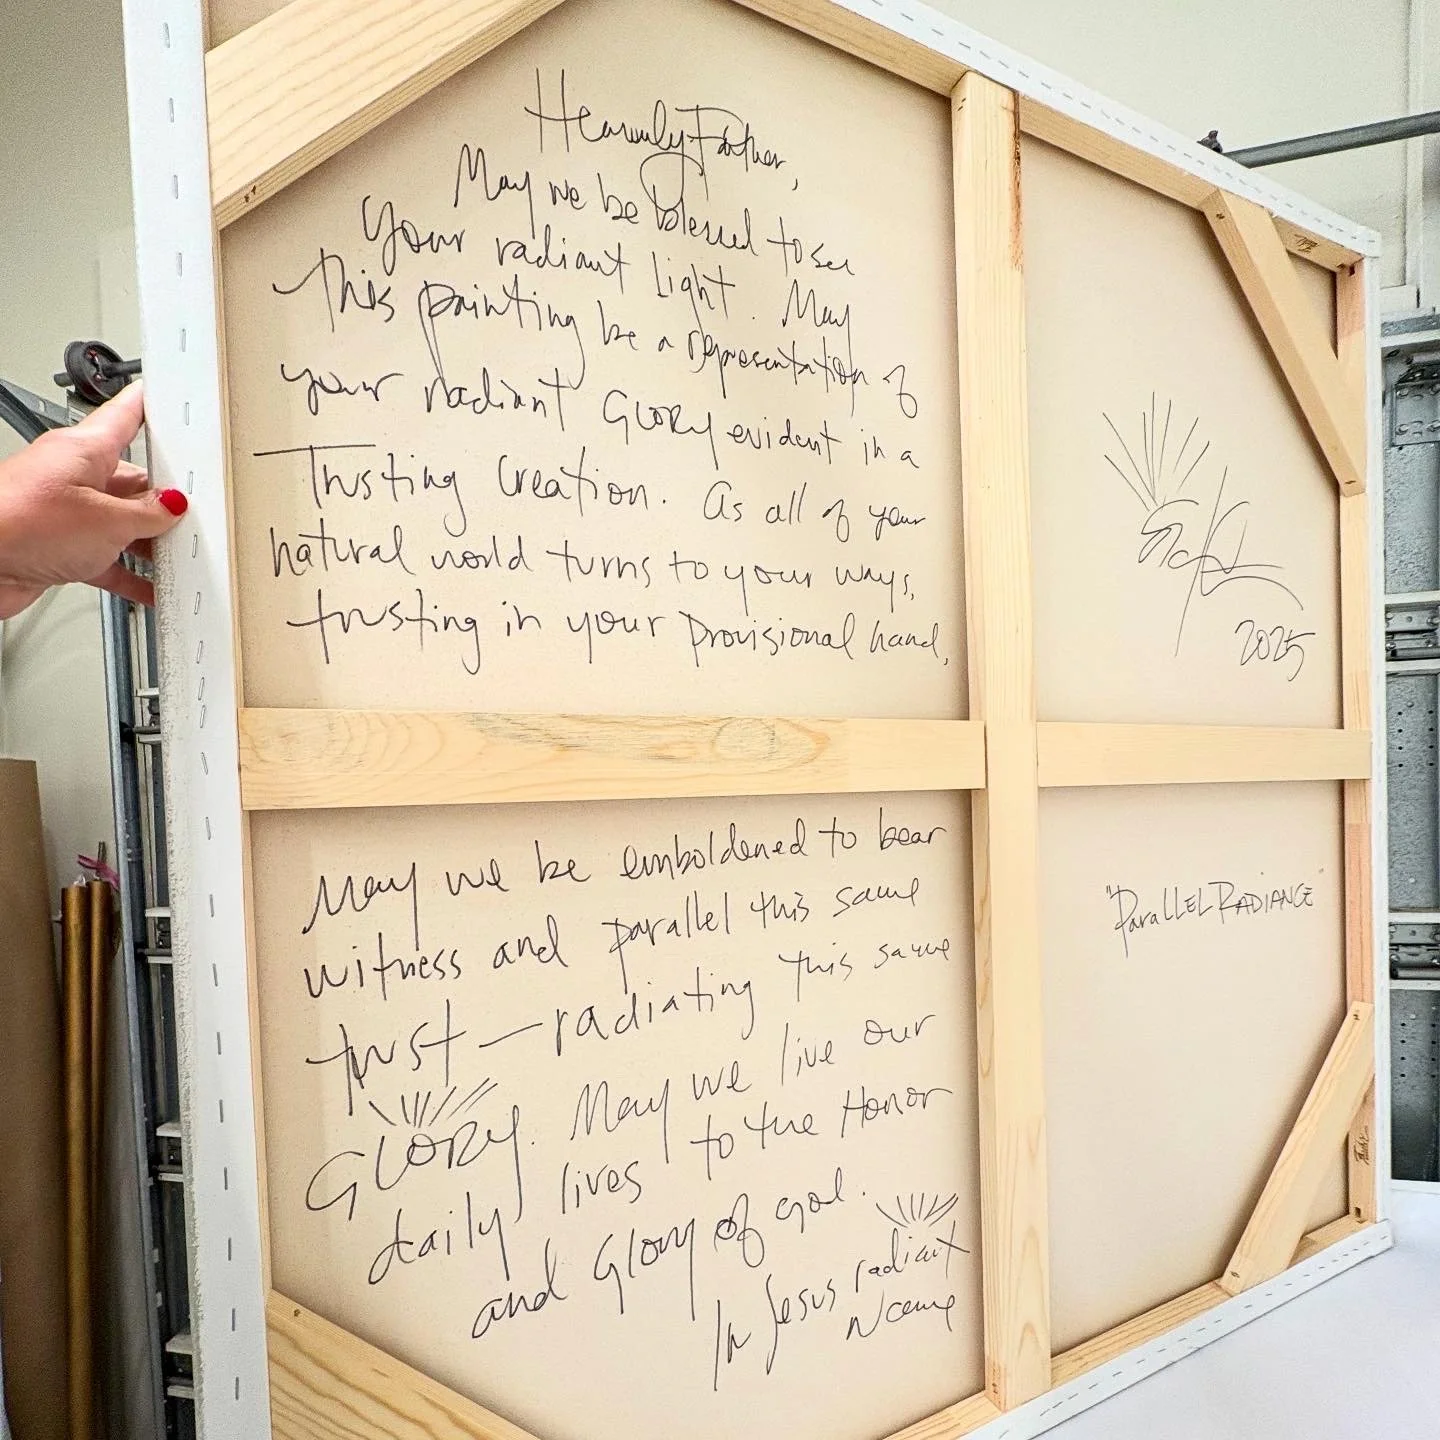 Heavenly Father,
May we be blessed to see
your radiant light. May
this painting be a representation of
your radiant GLORY evident in a
Trusting Creation. As all of your
natural world turns to your ways,
trusting in your provisional hand,
May we be emboldened to bear
witness and parallel this same
trust — radiating this same
GLORY. May we live our
daily lives to the Honor
and Glory of God.
In Jesus radiant
Name
2025
"Parallel Radiance"